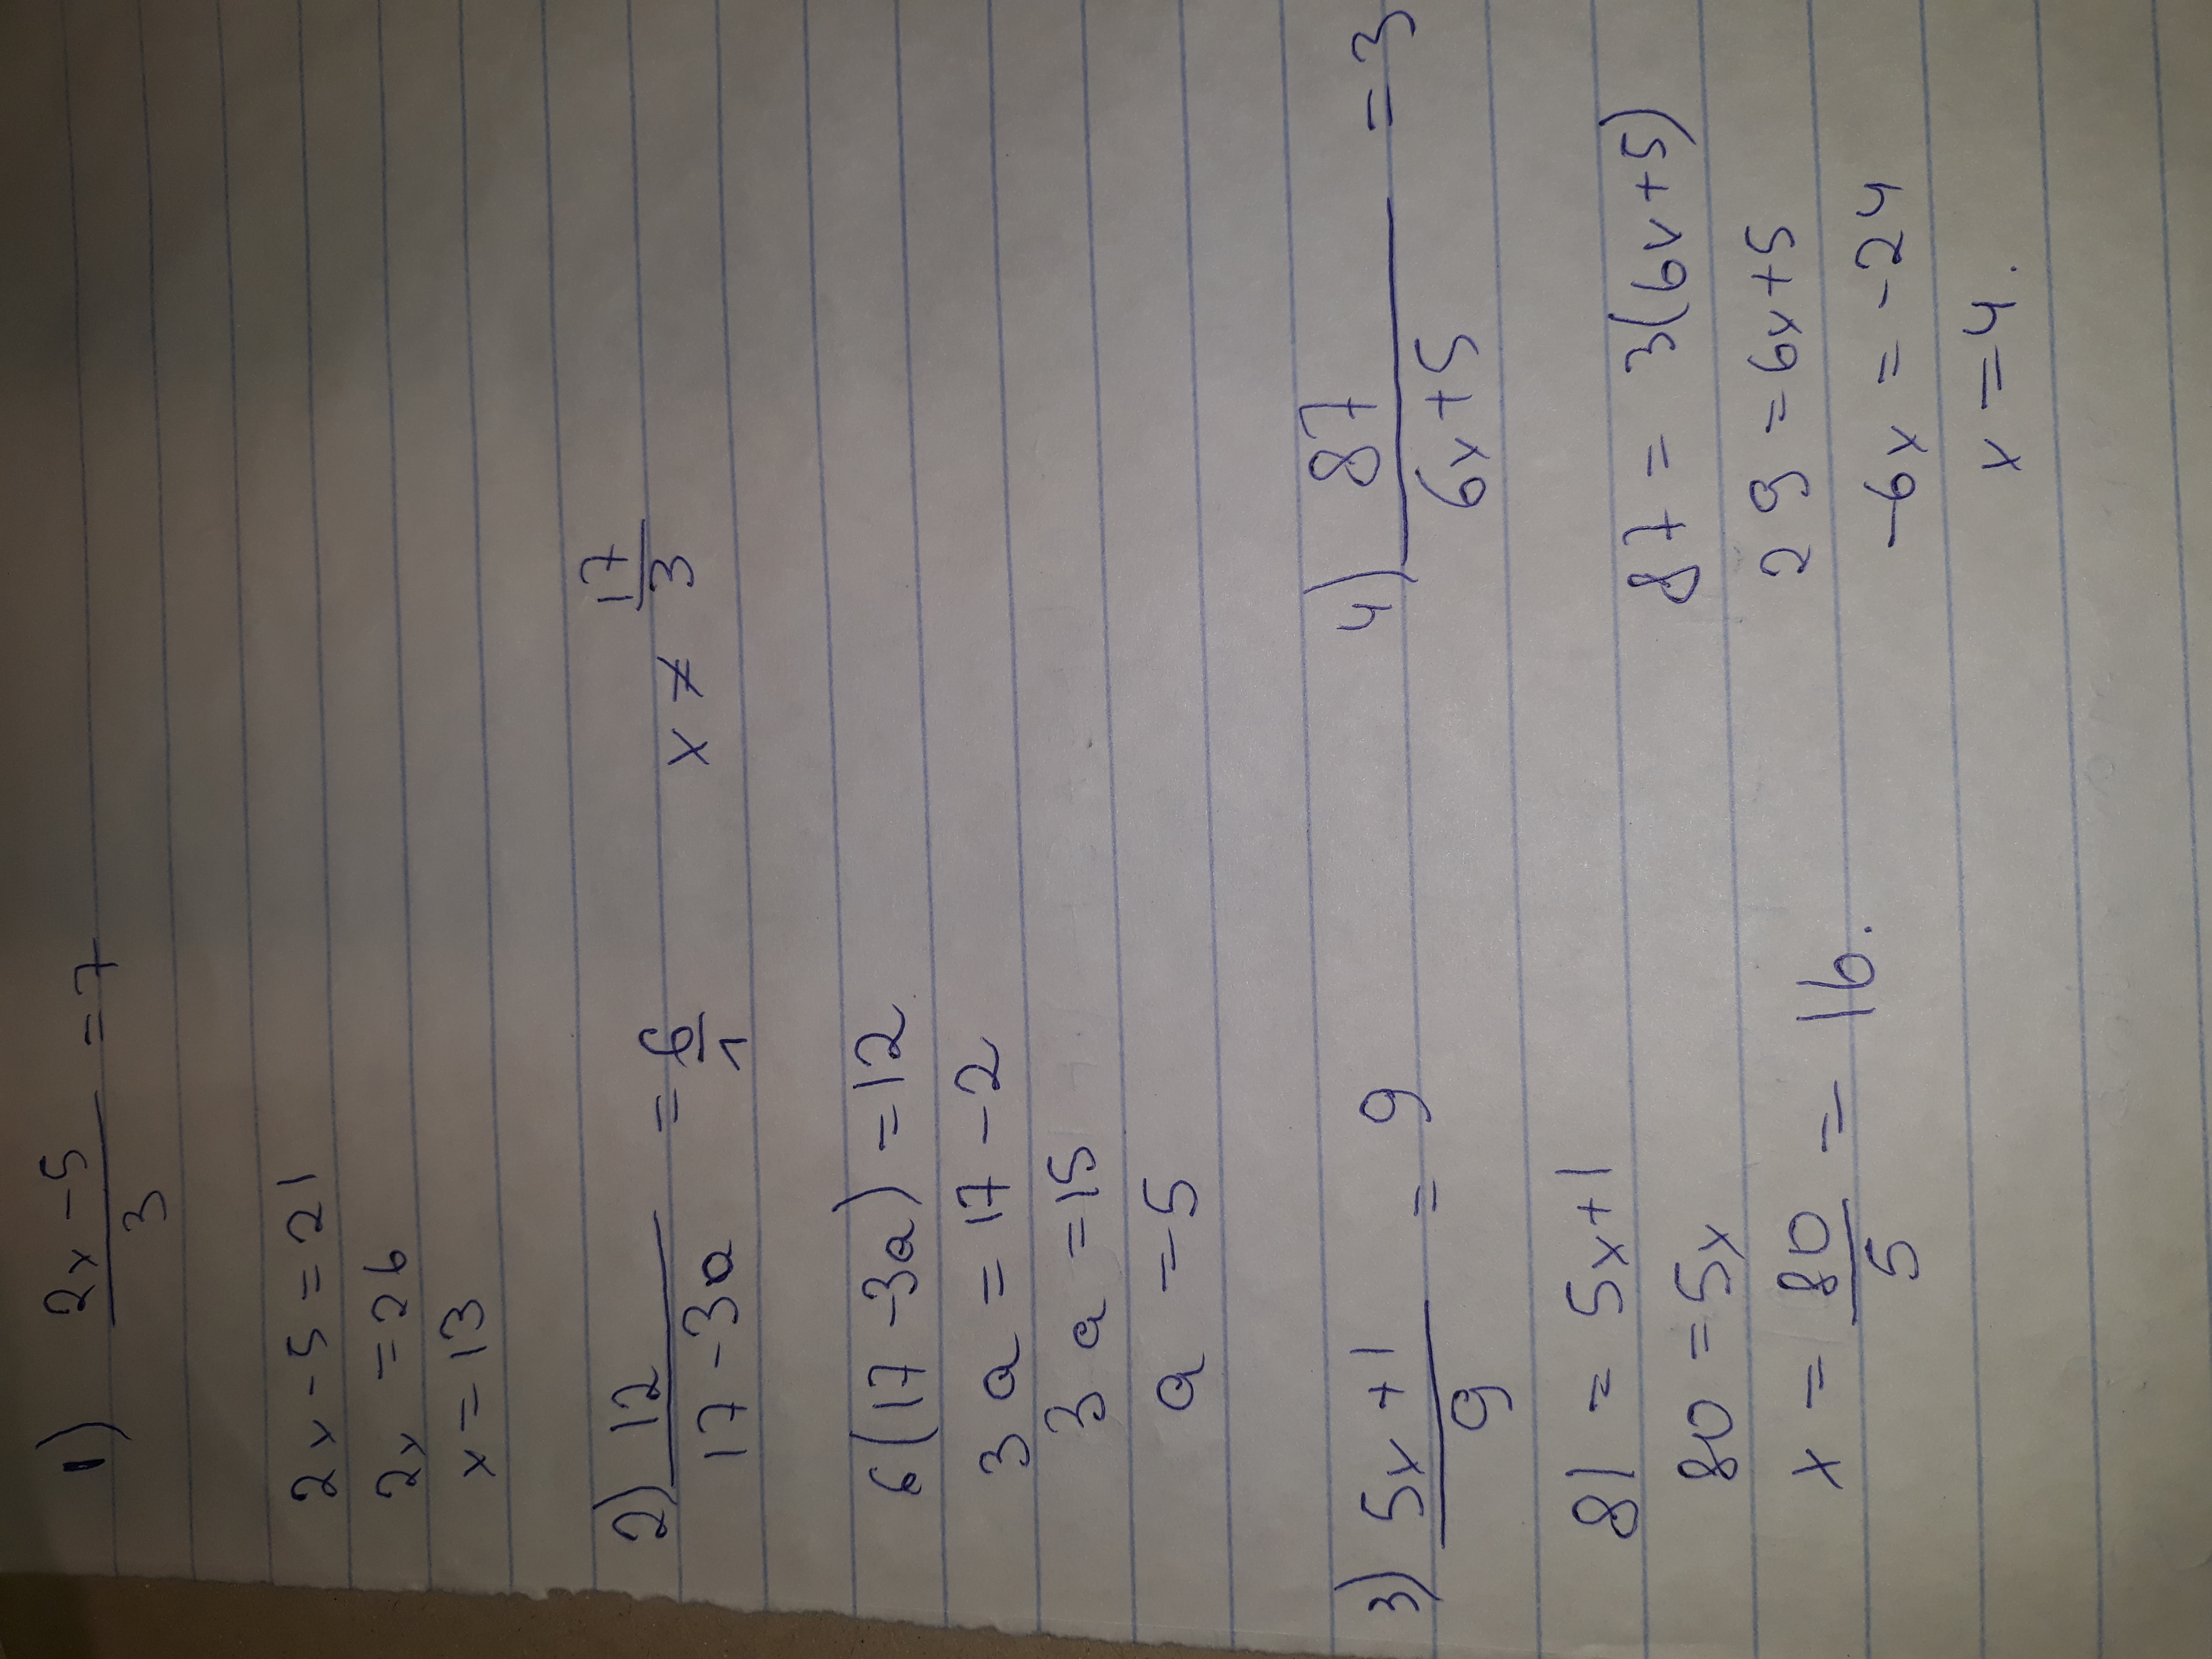 1) 2x-5/3 =7
2x-5=21
2x =26
x=13
2) 12/17-3a =6/1 x≠ 17/3
6(17-3a)=12
3a=17-2
3a=15
a=5
3) 5x+1/9 = 9
81 = 5x+1
80=5x
x = 80/5 = 16.
4) 87/6x+5 =3
87 = 3(6x+5)
29=6x+5
-6x = -24
x=4.